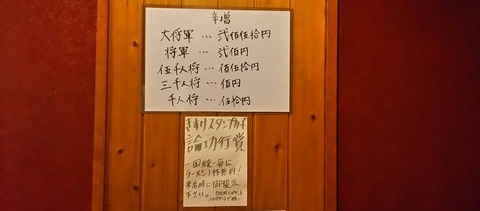 辛増
大将軍 … 弐佰伍拾円
将軍 … 弐佰円
伍千人将 … 佰伍拾円
三千人将 … 佰円
千人将 … 伍拾円
きすけスタンプカード
論功行賞
一国統一毎に
ラーメン1杯無料!
来店時に御提示
下さい。